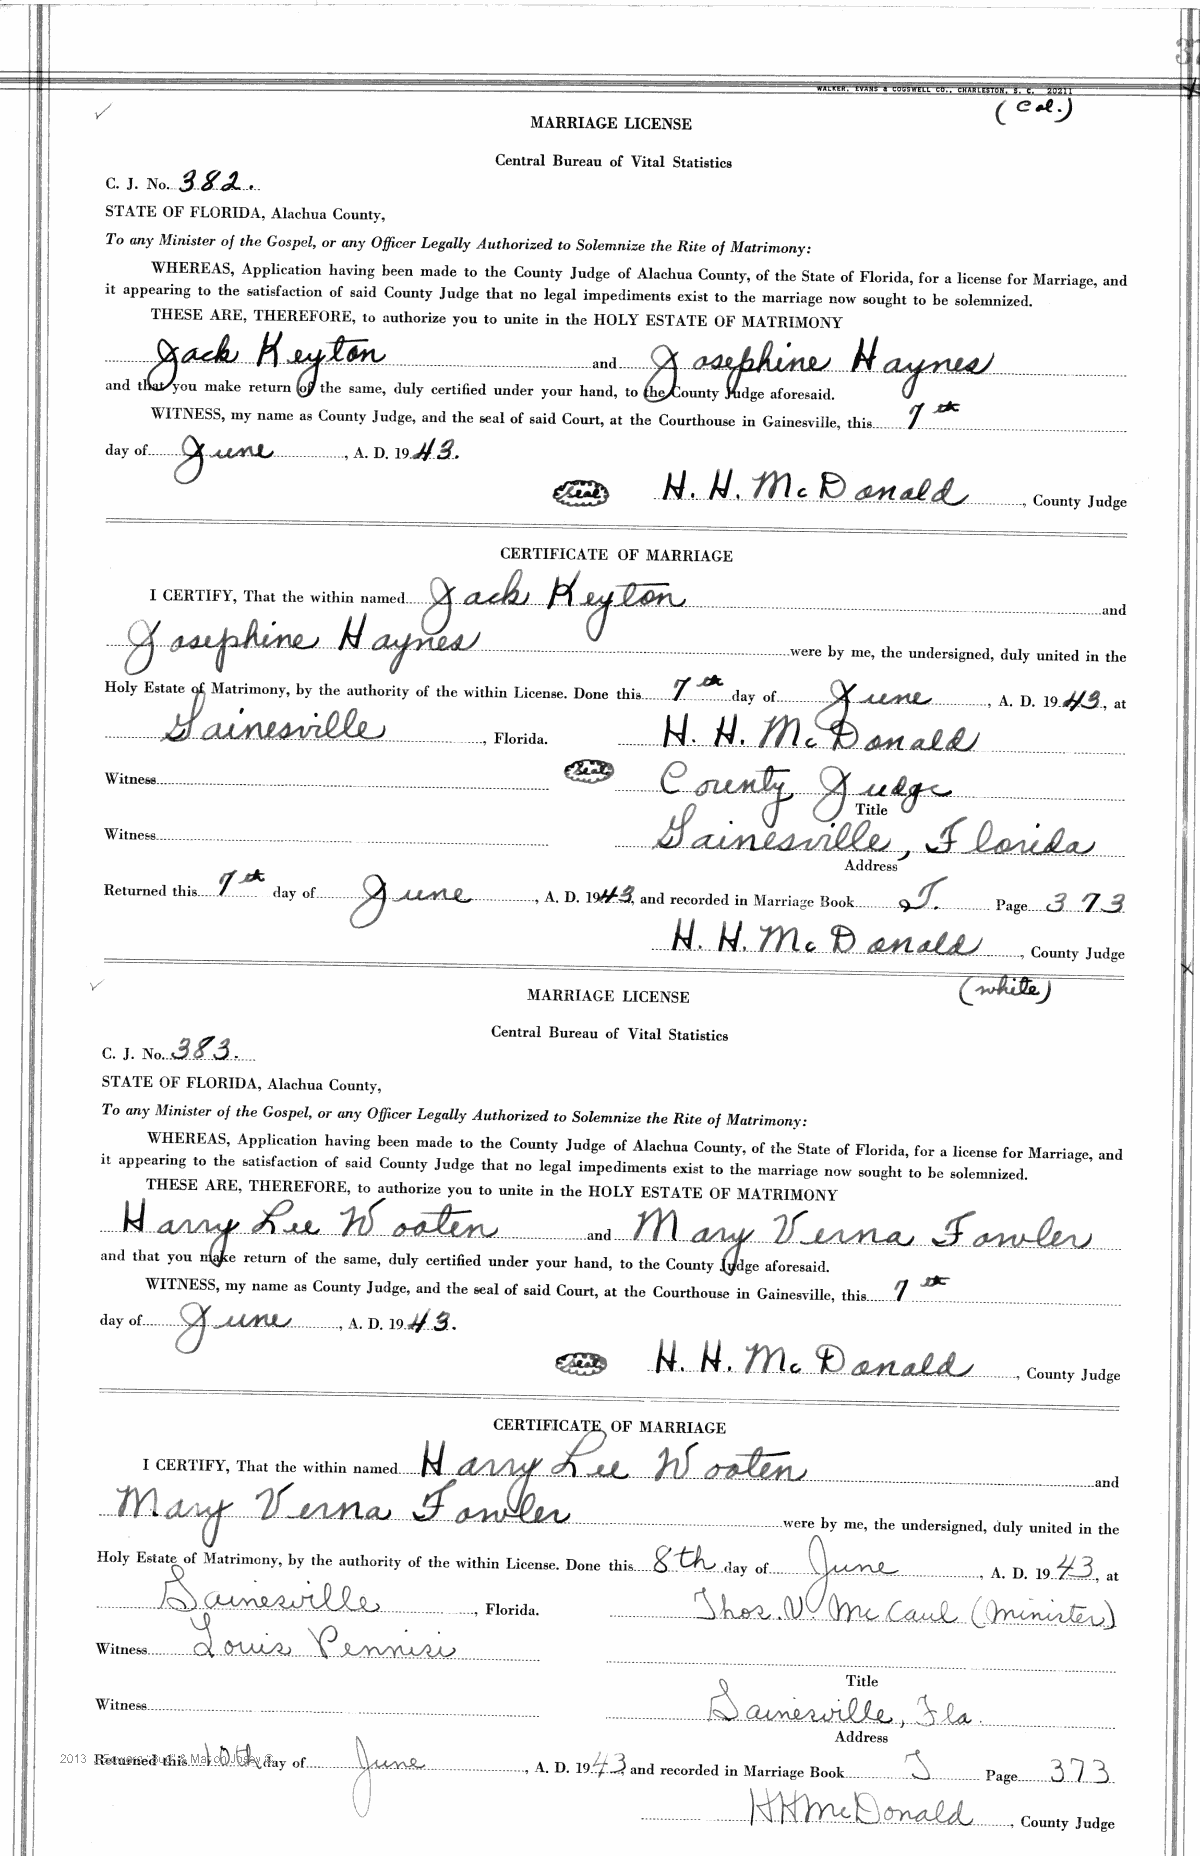 WALKER, EVANS & COGSWELL CO., CHARLESTON, S. C. 20211
(Col.)
MARRIAGE LICENSE
Central Bureau of Vital Statistics
C. J. No. 382.
STATE OF FLORIDA, Alachua County,
To any Minister of the Gospel, or any Officer Legally Authorized to Solemnize the Rite of Matrimony:
WHEREAS, Application having been made to the County Judge of Alachua County, of the State of Florida, for a license for Marriage, and
it appearing to the satisfaction of said County Judge that no legal impediments exist to the marriage now sought to be solemnized.
THESE ARE, THEREFORE, to authorize you to unite in the HOLY ESTATE OF MATRIMONY
Jack Keyton and Josephine Haynes
and that you make return of the same, duly certified under your hand, to the County Judge aforesaid.
WITNESS, my name as County Judge, and the seal of said Court, at the Courthouse in Gainesville, this 7th
day of June, A. D. 1943.
Seal H. H. McDonald, County Judge
CERTIFICATE OF MARRIAGE
I CERTIFY, That the within named Jack Keyton and
Josephine Haynes were by me, the undersigned, duly united in the
Holy Estate of Matrimony, by the authority of the within License. Done this 7th day of June, A. D. 1943, at
Gainesville, Florida. H. H. McDonald
Witness Seal County Judge
Title
Witness Gainesville, Florida
Address
Returned this 7th day of June, A. D. 1943, and recorded in Marriage Book T. Page 373
H. H. McDonald, County Judge
(white)
MARRIAGE LICENSE
Central Bureau of Vital Statistics
C. J. No. 383.
STATE OF FLORIDA, Alachua County,
To any Minister of the Gospel, or any Officer Legally Authorized to Solemnize the Rite of Matrimony:
WHEREAS, Application having been made to the County Judge of Alachua County, of the State of Florida, for a license for Marriage, and
it appearing to the satisfaction of said County Judge that no legal impediments exist to the marriage now sought to be solemnized.
THESE ARE, THEREFORE, to authorize you to unite in the HOLY ESTATE OF MATRIMONY
Harry Lee Wooten and Mary Verna Fowler
and that you make return of the same, duly certified under your hand, to the County Judge aforesaid.
WITNESS, my name as County Judge, and the seal of said Court, at the Courthouse in Gainesville, this 7th
day of June, A. D. 1943.
Seal H. H. McDonald, County Judge
CERTIFICATE OF MARRIAGE
I CERTIFY, That the within named Harry Lee Wooten and
Mary Verna Fowler were by me, the undersigned, duly united in the
Holy Estate of Matrimony, by the authority of the within License. Done this 8th day of June, A. D. 1943, at
Gainesville, Florida. Thos. V. McCaul (Minister)
Witness Louis Pennisi
Title
Witness Gainesville, Fla.
Address
2013
Returned this 10th day of June, A. D. 1943, and recorded in Marriage Book T Page 373
HHMcDonald, County Judge